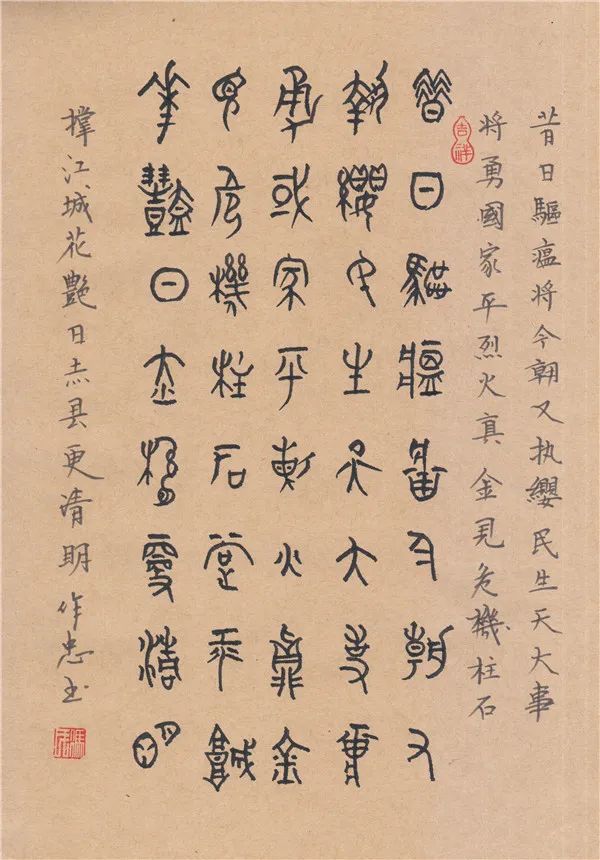 昔日驅瘟将今朝又执纓民生天大事
将勇國家平烈火真金見危機柱石
吉祥
昔日驅瘟將今朝又
執纓民生天大事將
勇或家平烈火真金
見危機柱石撑江城
華豔日赤縣更清明
撑江城花艷日赤县更清明作忠书